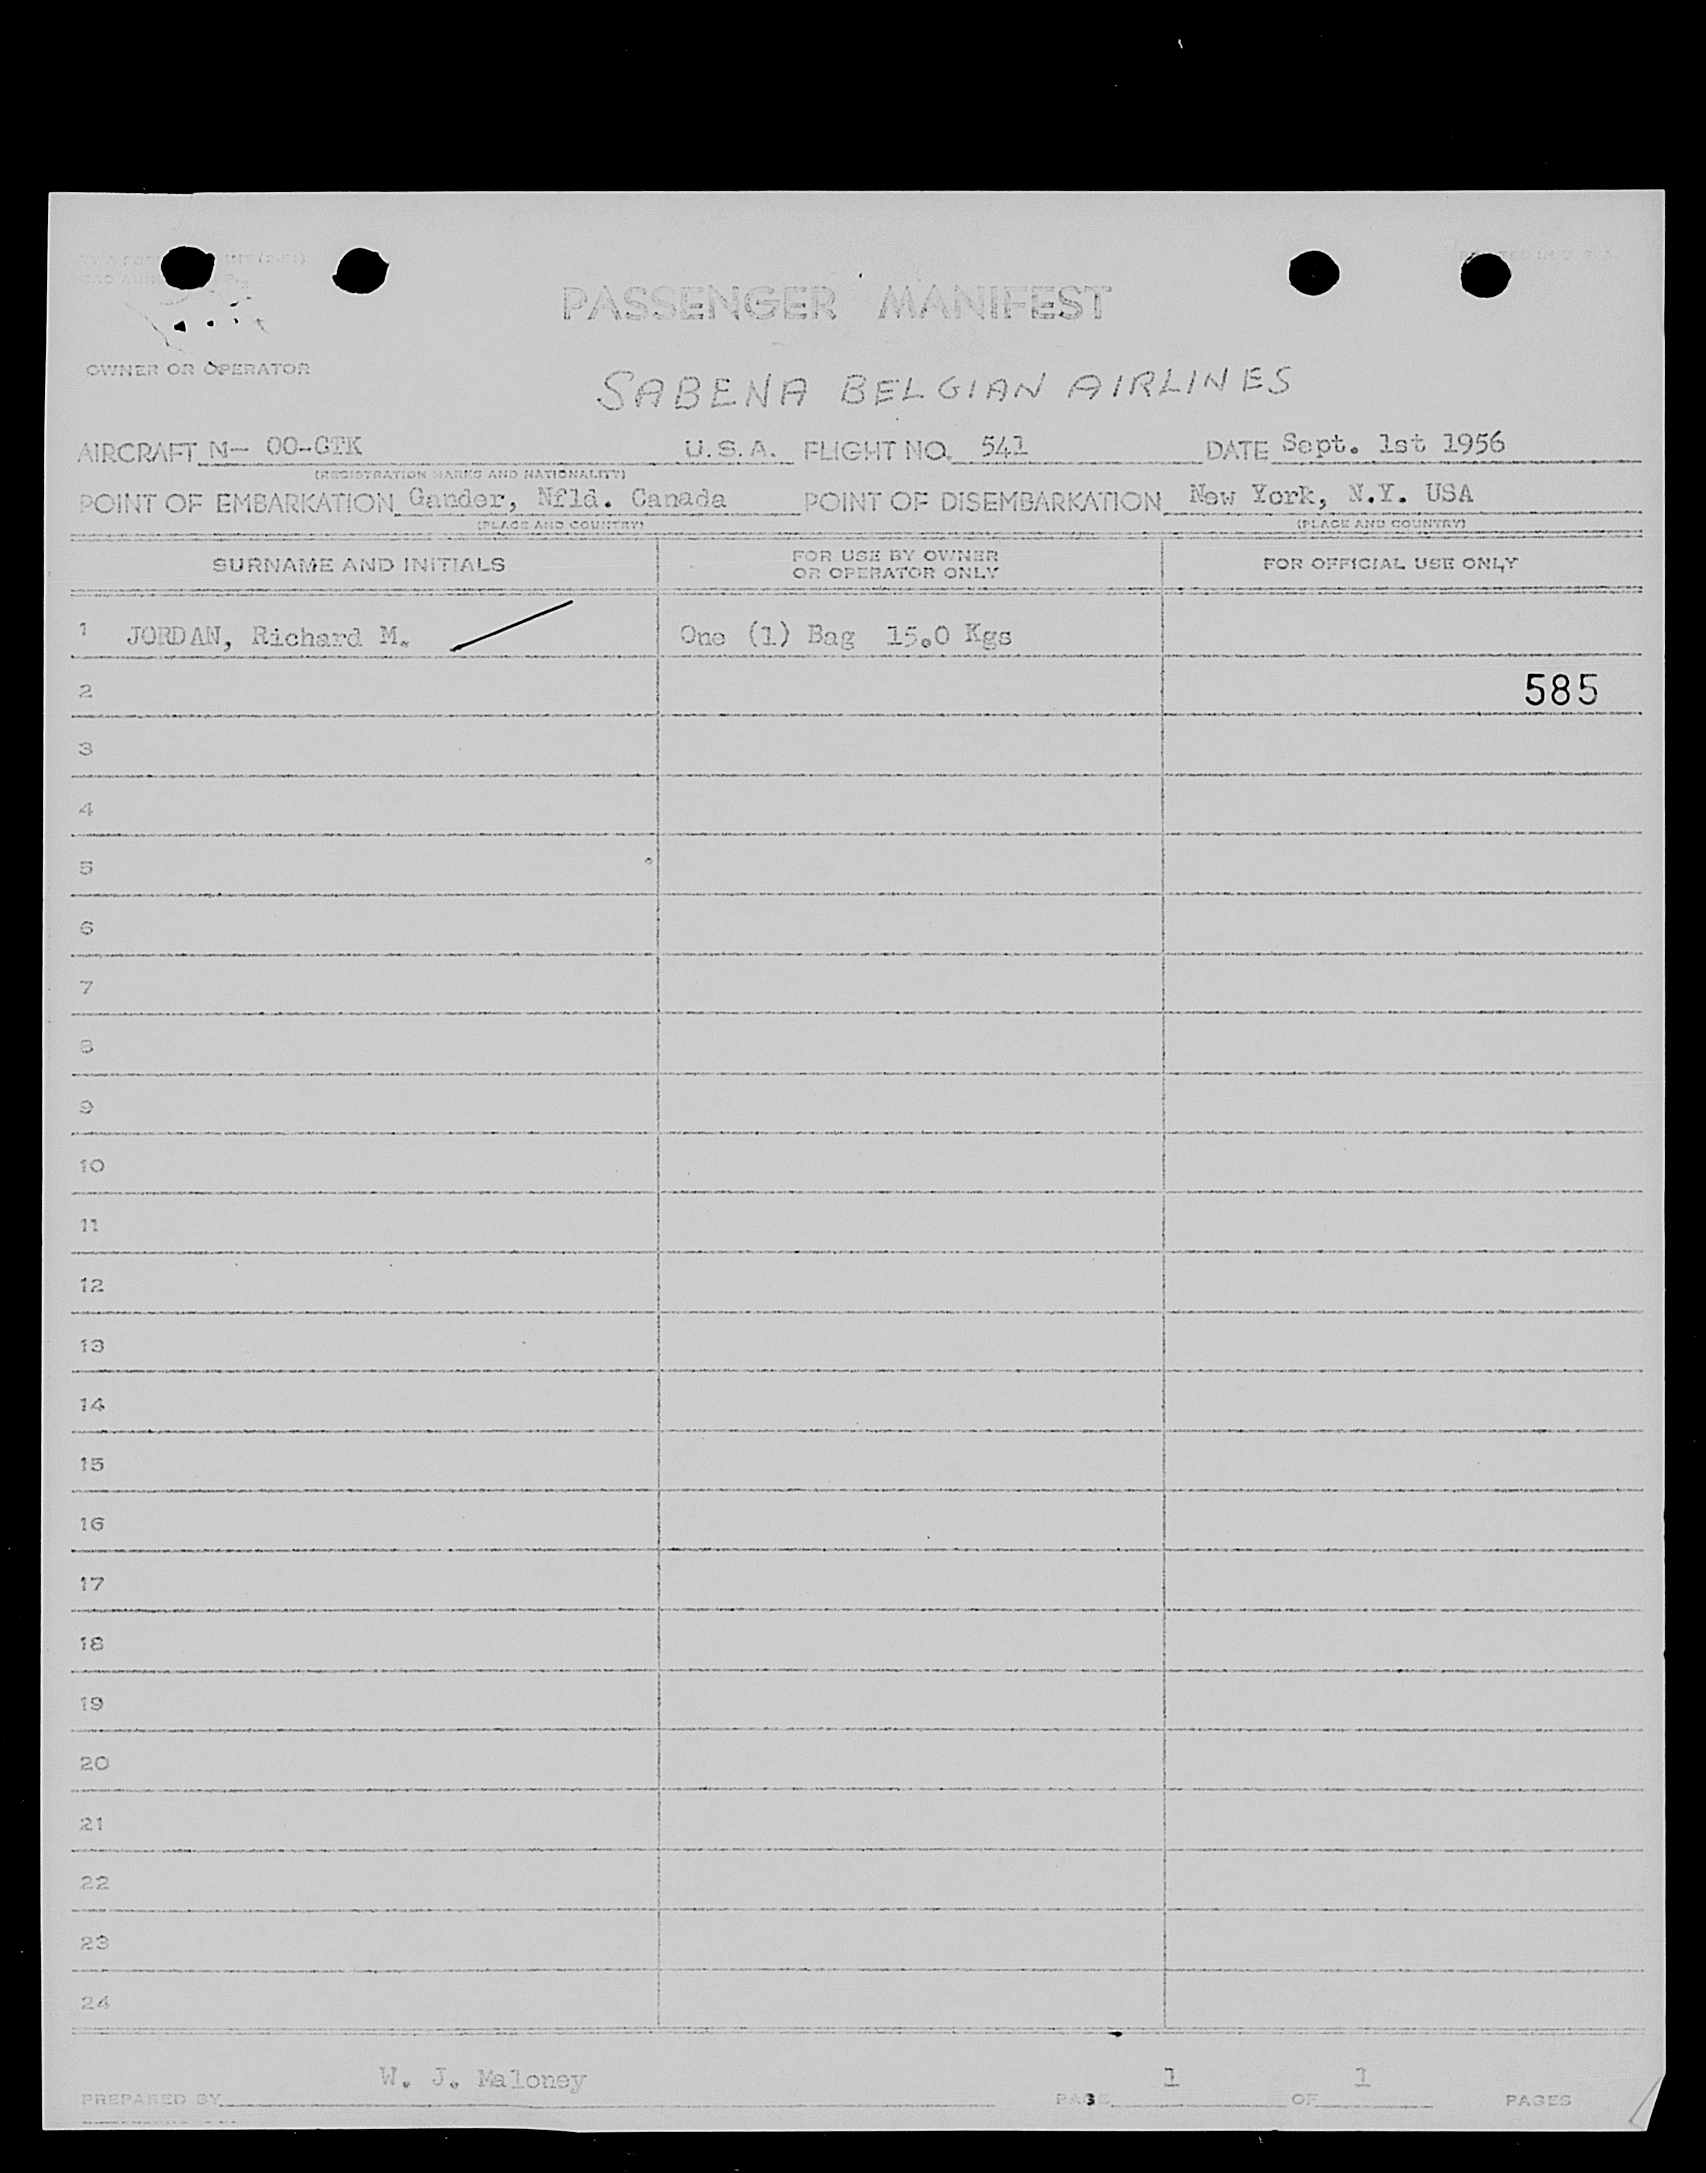 PASSENGER MANIFEST
OWNER OR OPERATOR
SABENA BELGIAN AIRLINES
AIRCRAFT N- OO-CTK U.S.A. FLIGHT NO. 541 DATE Sept. 1st 1956
(REGISTRATION MARKS AND NATIONALITY)
POINT OF EMBARKATION Gander, Nfld. Canada POINT OF DISEMBARKATION New York, N.Y. USA
(PLACE AND COUNTRY) (PLACE AND COUNTRY)
SURNAME AND INITIALS FOR USE BY OWNER OR OPERATOR ONLY FOR OFFICIAL USE ONLY
1 JORDAN, Richard M. One (1) Bag 15.0 Kgs
2 585
3
4
5
6
7
8
9
10
11
12
13
14
15
16
17
18
19
20
21
22
23
24
PREPARED BY W. J. Maloney PAGE 1 OF 1 PAGES